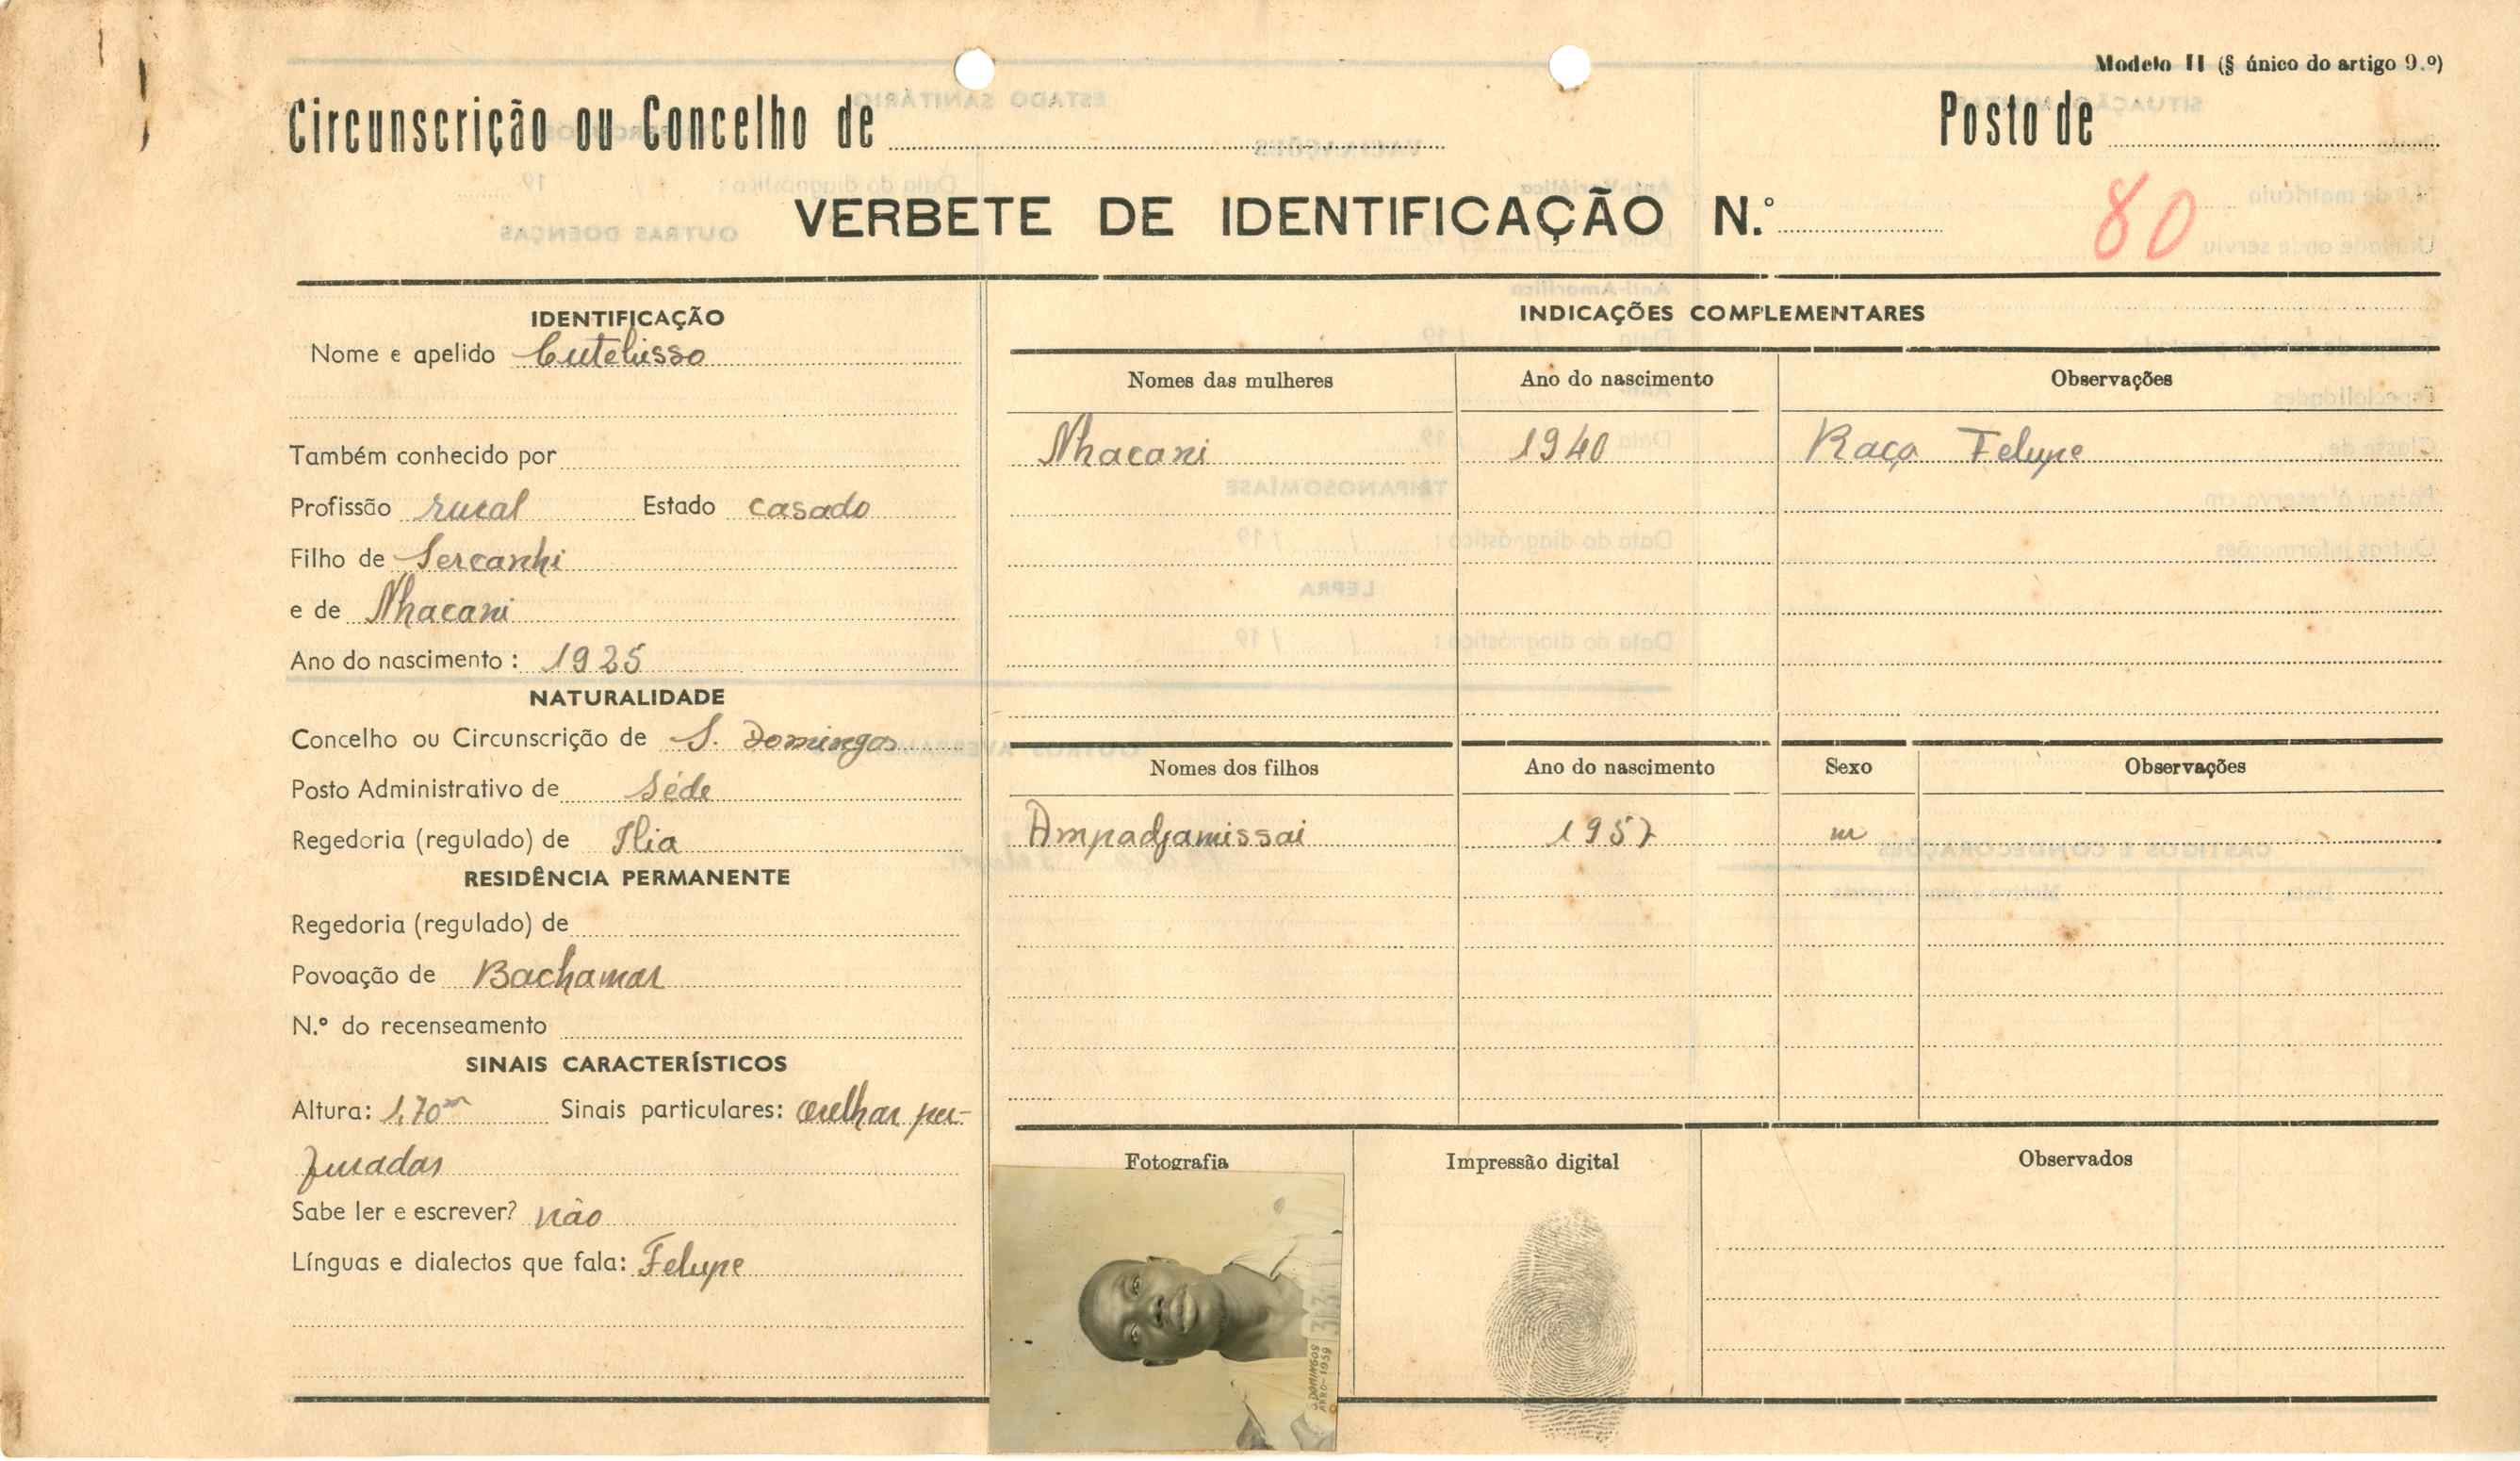 Modelo II (§ único do artigo 9.º)
Circunscrição ou Concelho de
Posto de
VERBETE DE IDENTIFICAÇÃO N.º
80
IDENTIFICAÇÃO
Nome e apelido Cutelusso
Também conhecido por
Profissão rural Estado casado
Filho de Sercanhi
e de Nhacani
Ano do nascimento: 1925
NATURALIDADE
Concelho ou Circunscrição de S. Domingos
Posto Administrativo de Séde
Regedoria (regulado) de Ilia
RESIDÊNCIA PERMANENTE
Regedoria (regulado) de
Povoação de Bachamar
N.º do recenseamento
SINAIS CARACTERÍSTICOS
Altura: 1,70m Sinais particulares: orelhas per-
furadas
Sabe ler e escrever? não
Línguas e dialectos que fala: Felupe
INDICAÇÕES COMPLEMENTARES
Nomes das mulheres Ano do nascimento Observações
Nhacani 1940 Raça Felupe
Nomes dos filhos Ano do nascimento Sexo Observações
Ampadjamissai 1957 m
Fotografia Impressão digital Observados
S. DOMINGOS
ANO-1959